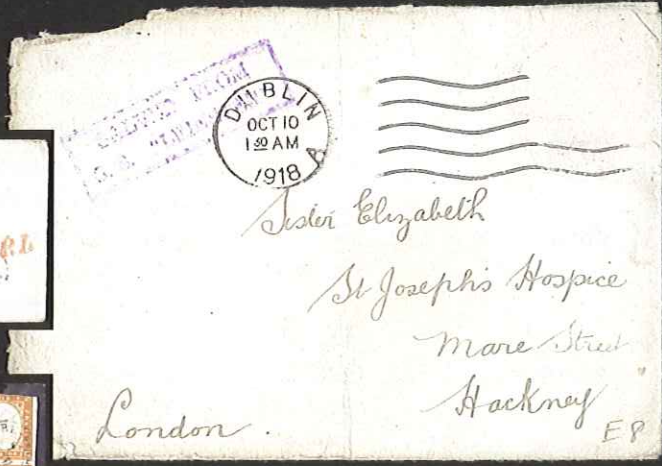 SALVED FROM
S. S. "
DUBLIN
OCT 10
1 30 AM
1918
A
Sister Elizabeth
St Joseph's Hospice
Mare Street
Hackney
London.
E8